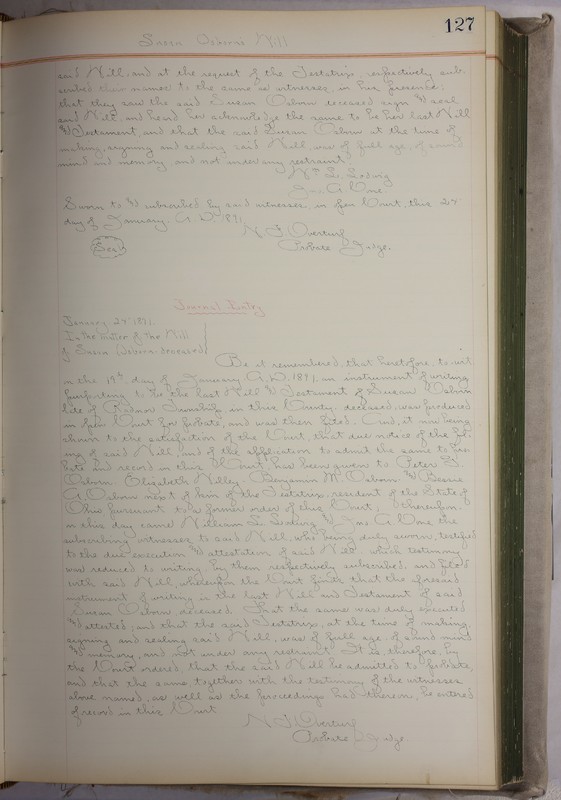 127
Susan Osborn's Will
said Will, and at the request of the Testatrix, respectively sub-
scribed their names to the same as witnesses, in her presence;
that they saw the said Susan Osborn deceased sign & seal
said Will, and heard her acknowledge the same to be her last Will
& Testament and that the said Susan Osborn at the time of
making, signing and sealing said Will, was of full age, of sound
mind and memory, and not under any restraint
Wm L.
A.
Sworn to & subscribed by said witnesses, in open Court, this 24"
day of January A.D. 1891
Seal
N. F. Overturf
Probate Judge.
Journal Entry
January 24" 1891.
In the Matter of the Will
of Susan Osborn deceased
Be it remembered, that heretofore, to-wit
on the 19th day of January A.D. 1891, an instrument of writing
purporting to be the last Will & Testament of Susan Osborn
late of Radnor Township, in this County, deceased, was produced
in open Court for probate, and was then filed. And, it now being
shown to the satisfaction of the Court, that due notice of the fil-
ing of said Will, and of the application to admit the same to Pro-
bate and record in this Court has been given to Peter
Osborn Elizabeth Benjamin W. Osborn & Bessie
A. Osborn next of kin of the Testatrix, resident of the State of
Ohio pursuant to a former order of this Court; thereupon
on this day came William L. & A. the
subscribing witnesses to said Will, who being duly sworn, testified
to the due execution & attestation of said Will, which testimony
was reduced to writing, by them respectively subscribed, and filed
with said Will, whereupon the Court finds that the aforesaid
instrument of writing is the last Will and Testament of said
Susan Osborn, deceased. That the same was duly executed
& attested; and that the said Testatrix, at the time of making,
signing and sealing said Will, was of full age, of sound mind
& memory, and not under any restraint. It is, therefore, by
the Court ordered that the said Will be admitted to probate,
and that the same, together with the testimony of the witnesses
above named, as well as the proceedings had thereon, be entered
of record in this Court
N. F. Overturf
Probate Judge.